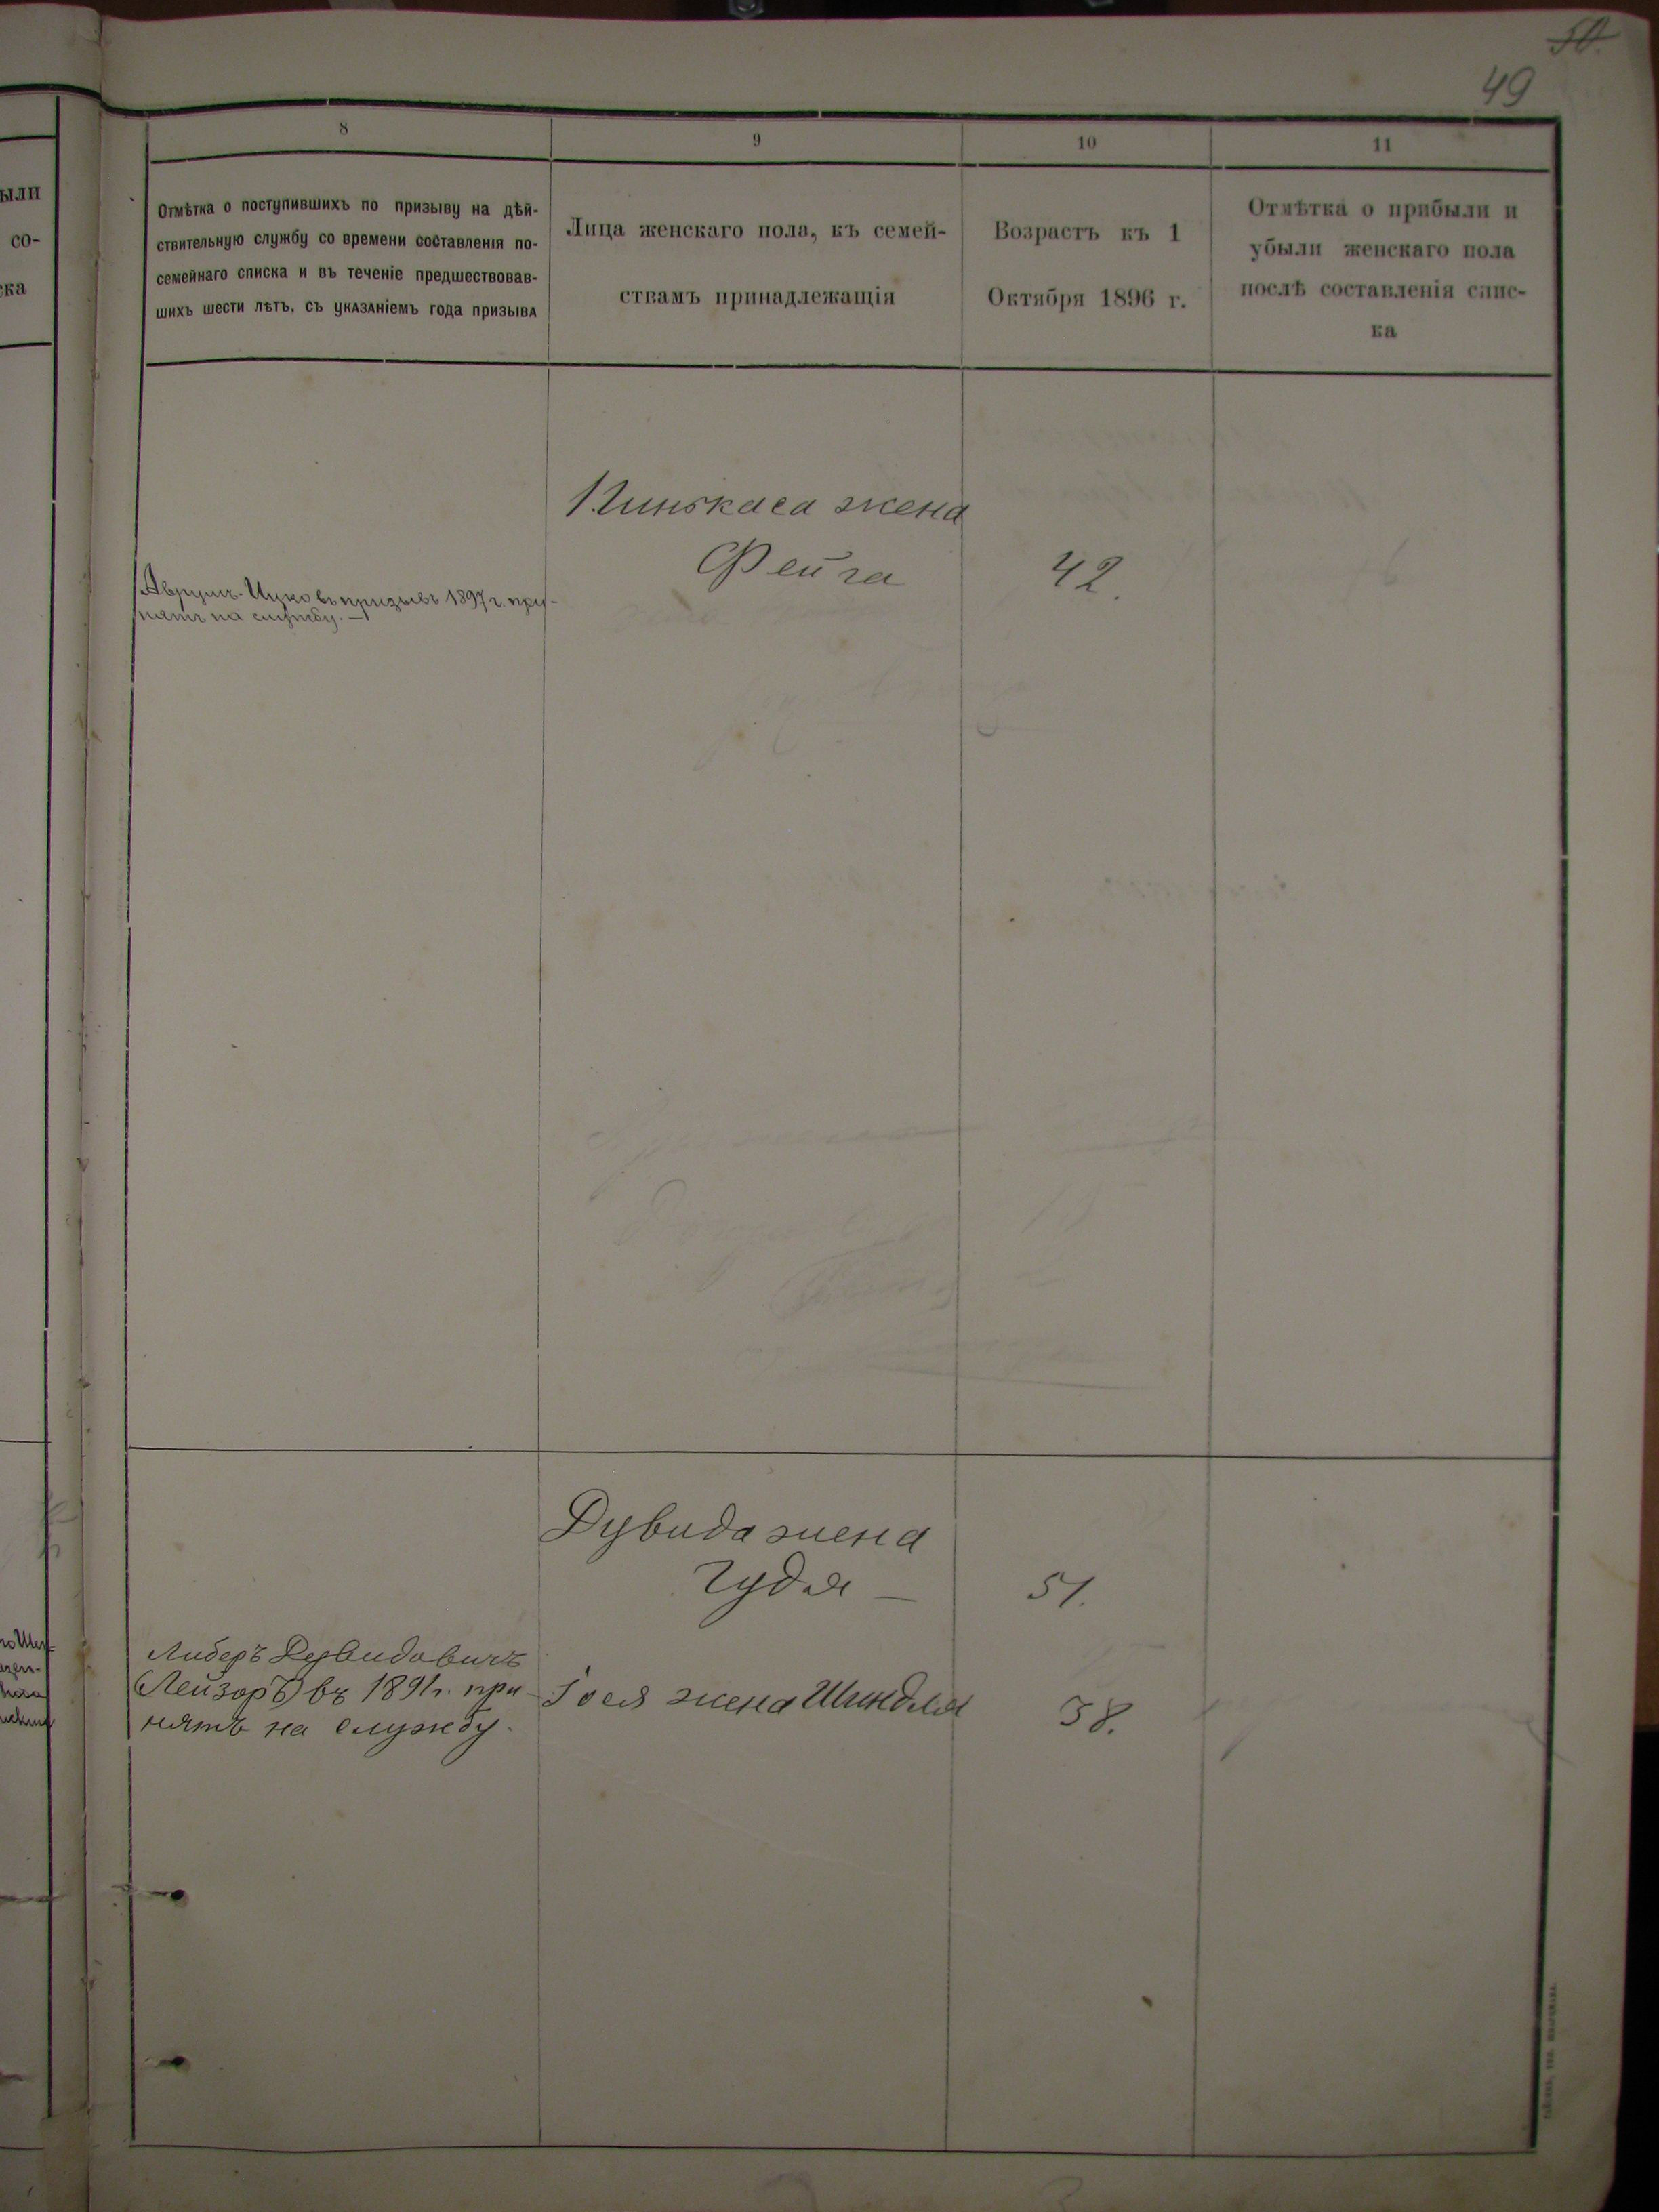 50.
49
8
9
10
11
Отмѣтка о поступившихъ по призыву на дѣй-
ствительную службу со времени составленія по-
семейнаго списка и въ теченіе предшествовав-
шихъ шести лѣтъ, съ указаніемъ года призыва
Лица женскаго пола, къ семей-
ствамъ принадлежащія
Возрастъ къ 1
Октября 1896 г.
Отмѣтка о прибыли и
убыли женскаго пола
послѣ составленія спис-
ка
ыли
со-
ска
Пинькаса жена
Фейга
42.
Аврумъ-Ицко въ призывъ 1897 г. при-
нятъ на службу.—
Дувида жена
Гудя —
51.
Либеръ Дувидовичъ
(Лейзоръ) въ 1891 г. при-
нятъ на службу.
Іося жена Шиндля
38.